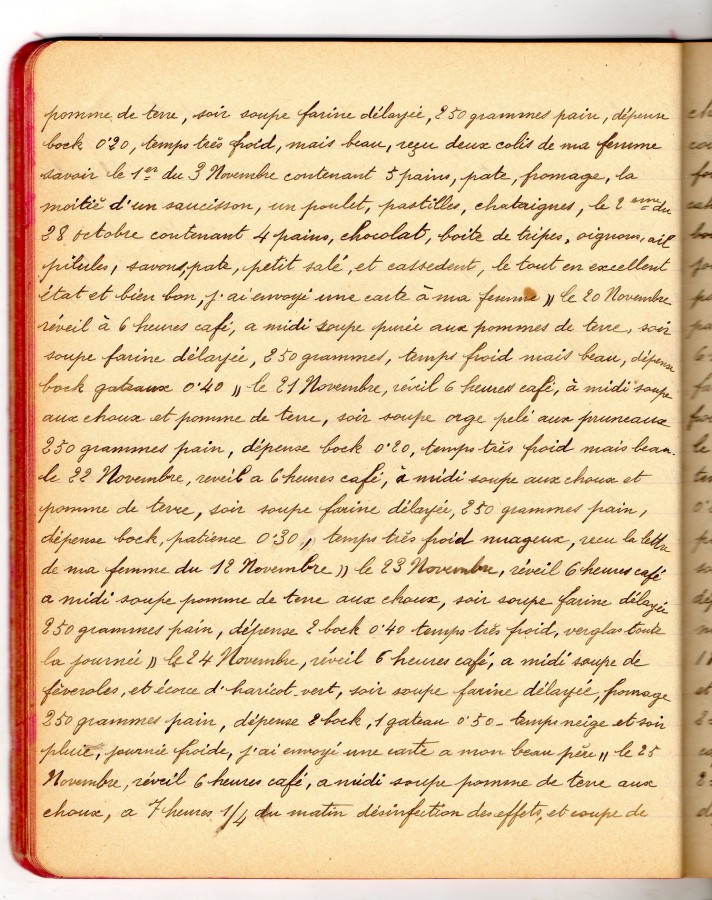 pomme de terre, soir soupe farine délayée, 250 grammes pain, dépense
bock 0'20, temps très froid, mais beau, reçu deux colis de ma femme
savoir le 1er du 3 Novembre contenant 5 pains, pate, fromage, la
moitié d'un saucisson, un poulet, pastilles, chataignes, le 2eme du
28 octobre contenant 4 pains, chocolat, boite de tripes, oignons, ail
pilules, savons, pate, petit salé, et cassedent, le tout en excellent
état et bien bon, j'ai envoyé une carte à ma femme » le 20 Novembre
réveil à 6 heures café, a midi soupe purée aux pommes de terre, soir
soupe farine délayée, 250 grammes, temps froid mais beau, dépense
bock gateaux 0'40 » le 21 Novembre, réveil 6 heures café, à midi soupe
aux choux et pomme de terre, soir soupe orge pelé aux pruneaux
250 grammes pain, dépense bock 0'20, temps très froid mais beau.
le 22 Novembre, reveil a 6 heures café, à midi soupe aux choux et
pomme de terre, soir soupe farine délayée, 250 grammes pain,
dépense bock, patience 0'30 » temps très froid nuageux, recu la lettre
de ma femme du 12 Novembre » le 23 Novembre, réveil 6 heures café
a midi soupe pomme de terre aux choux, soir soupe farine délayée
250 grammes pain, dépense 2 bock 0'40 temps très froid, verglas toute
la journée » le 24 Novembre, réveil 6 heures café, a midi soupe de
fèveroles, et écorce d'haricot-vert, soir soupe farine délayée, fromage
250 grammes pain, dépense 2 bock, 1 gateau 0'50 - temps neige et soir
pluie, journée froide, j'ai envoyé une carte a mon beau père » le 25
Novembre, réveil 6 heures café, a midi soupe pomme de terre aux
choux, a 7 heures 1/4 du matin désinfection des effets, et coupe de